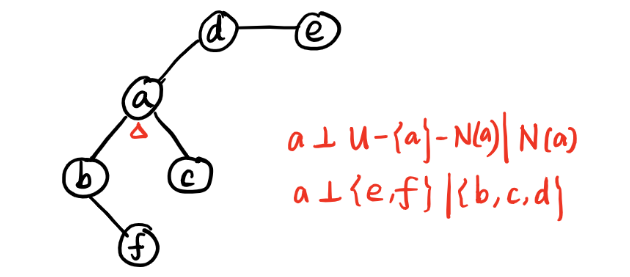 d e
a
b c
f
a ⊥ U-{a}-N(a)|N(a)
a ⊥ {e,f}|{b,c,d}